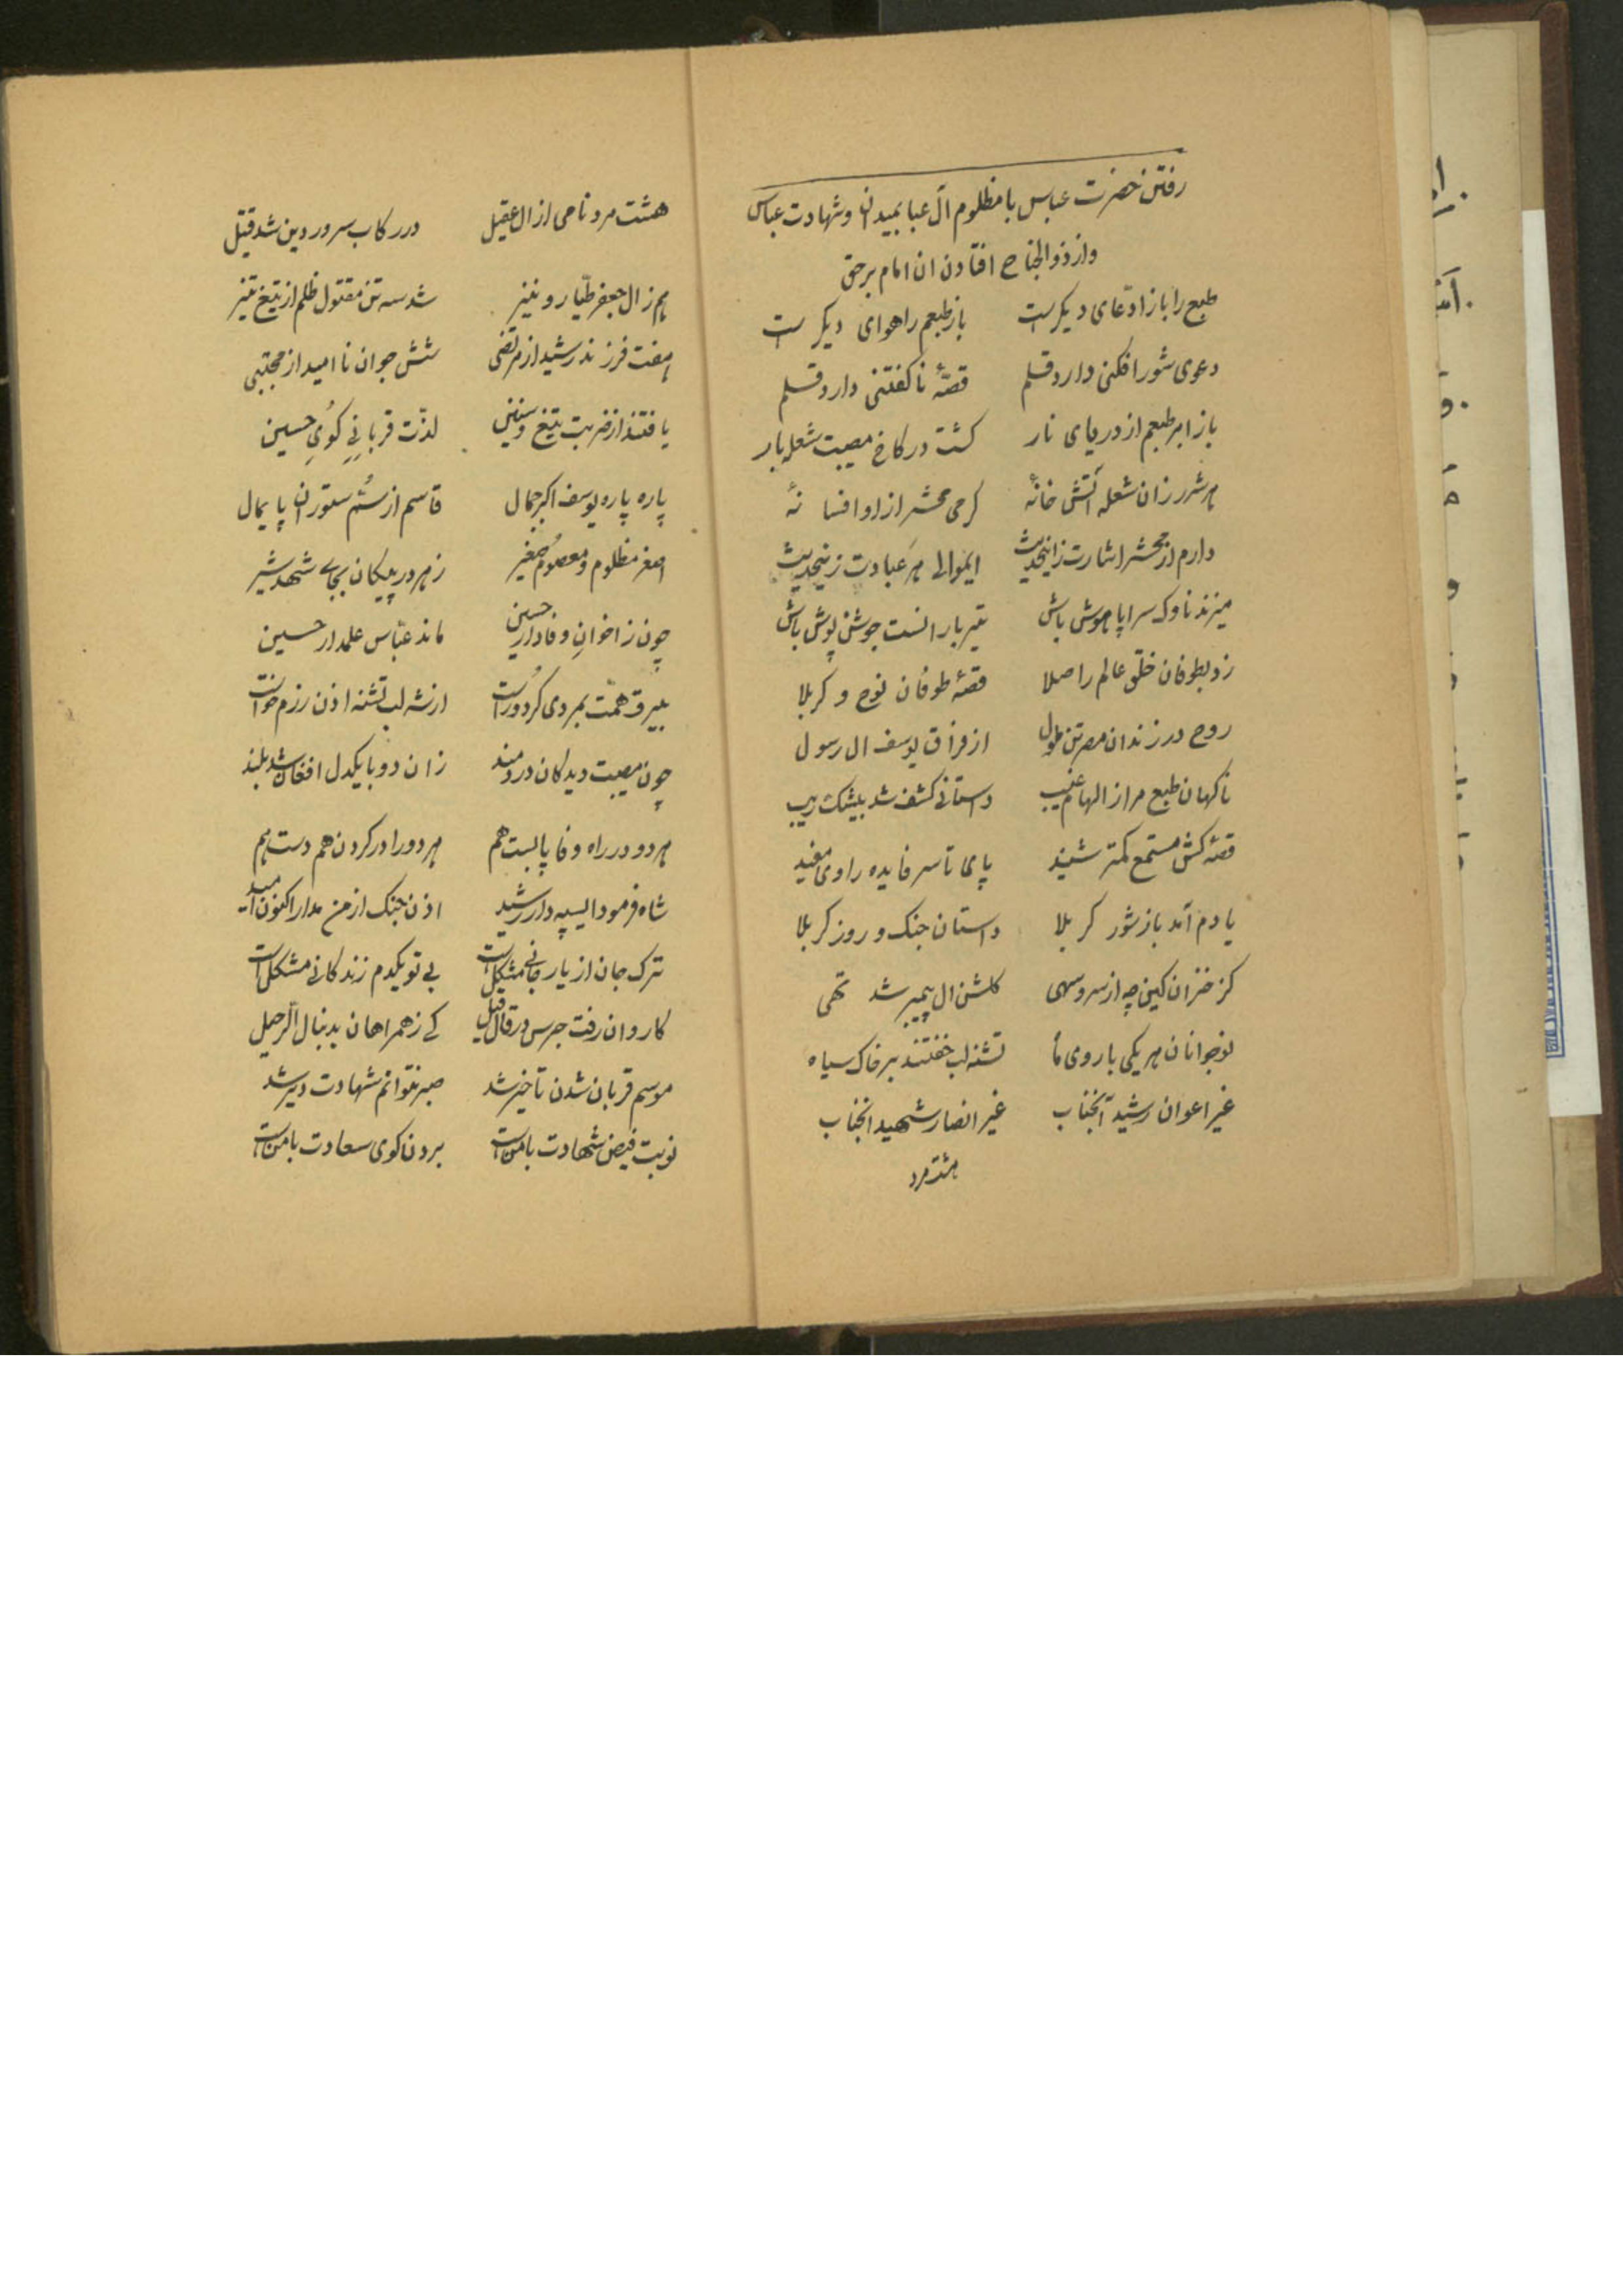 رفتن حضرت عباس با مظلوم آل عبا بمیدان و شهادت عباس
و از ذوالجناح افتادن ان امام برحق
طبع را باز ادّعای دیکرست باز طبعم را هوای دیکرست
دعوی شور افکنی دارد قلم قصّهٔ ناکفتنی دارد قلم
باز ابر طبعم از دریای نار کشت در کاخ مصیبت شعله بار
هر شرر زان شعله آتش خانهٔ کرمی محشر از او افسانهٔ
دارم از محشر اشارت زینحدیث ایموالی هر عبادت زینحدیث
میزند ناوک سراپا هوش باش تیر بارانست جوشن پوش باش
زد بطوفان خلق عالم را صلا قصّهٔ طوفان نوح و کربلا
روح در زندان مصر تن ملول از فراق یوسف ال رسول
ناکهان طبع مرا ز الهام غیب داستانی کشف شد بیشک و ریب
قصّهٔ کش مستمع کمتر شنید پای تا سر فایده راوی مفید
یادم آمد باز شور کربلا داستان جنک و روز کربلا
کز خزان کین چه از سرو سهی کلشن ال پیمبر شد تهی
نوجوانان هر یکی با روی ماه تشنه لب خفتند بر خاک سیاه
غیر اعوان رشید آنجناب غیر انصار شهید انجناب
هشت مرد
هشت مرد نامی از ال عقیل در رکاب سرور دین شد قتیل
هم ز ال جعفر طیّار و نیز شد سه تن مقتول ظلم از تیغ تیز
هفت فرزند رشید از مرتضی شش جوان ناامید از مجتبی
یافتند از ضربت تیغ و سنین لذّت قربانی کوی حسین
پاره پاره یوسف اکبر جمال قاسم از سمّ ستوران پایمال
اصغر مظلوم و معصوم صغیر زهر در پیکان بجای شهد شیر
چون ز اخوان وفادار حسین ماند عبّاس علمدار حسین
بیرق همّت بمردی کرد راست از شه لب تشنه اذن رزم خواست
چون مصیبت دیدکان دردمند زان دو با یکدل افغان شد بلند
هر دو در راه وفا پابست هم هر دو را در کردن هم دست هم
شاه فرمود ای سپهدار رشید اذن جنک از من مدار اکنون امید
ترک جان از یار جانی مشکل است بی تو یکدم زندکانی مشکل است
کاروان رفت جرس در قال و قیل کی ز همراهان بدنبال الرحیل
موسم قربان شدن تاخیر شد صبر نتوانم شهادت دیر شد
نوبت فیض شهادت با منست بردن کوی سعادت با منست